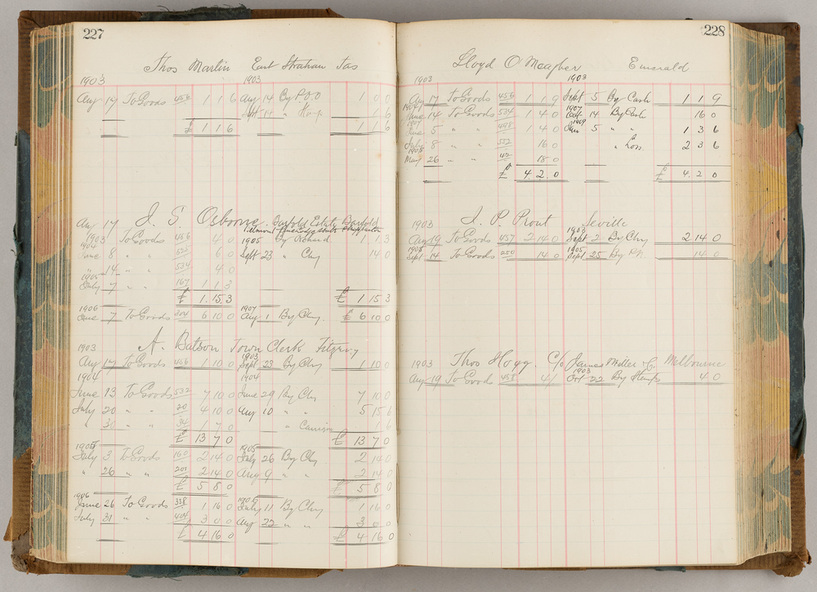 227
Thos Martin East Strahan Tas
1903 1903
Aug 17 To Goods 453 1 1 6 Aug 14 By P.O.O 1 0 0
1 6
£ 1 1 6 1 1 6
Aug 17 J. S. Osborne
1903 To Goods 4 0 1905 By Refund 1 1 3
June 8 " " 6 0 Sept 23 " Chq 14 0
14 " " 4 0
July 7 " " 167 1 1 3
£ 1 15 3 £ 1 15 3
1906 1907
June 7 To Goods 304 6 10 0 Aug 1 By Chq £ 6 10 0
1903 A. Batson Town Clerk Fitzroy
1903
Aug 17 To Goods 1 10 0 Sept 23 By Chq 1 10 0
1904 1904
June 13 To Goods 7 10 0 June 29 By Chq 7 10 0
July 20 " " 20 4 10 0 Aug 10 " " 5 15 6
" " 1 7 0 " 1 6
£ 13 7 0 £ 13 7 0
1905 1905
July 3 To Goods 163 2 14 0 July 26 By Chq 2 14 0
" 26 " " 201 2 14 0 Aug 9 " " 2 14 0
£ 5 8 0 £ 5 8 0
1906
June 26 To Goods 328 1 16 0 July 11 By Chq 1 16 0
July 31 " " 404 3 0 0 Aug 22 " " 3 0 0
£ 4 16 0 £ 4 16 0
228
Lloyd O'Meagher Emerald
1903 1903
Aug 17 To Goods 456 1 1 9 Sept 5 By Cash 1 1 9
1907
14 To Goods 574 1 4 0 Oct 14 By Cash 16 0
1909
5 " " 1 4 0 Jan 5 " " 1 3 6
July 8 " " 16 0 " Loss 2 3 6
26 " " 18 0
£ 4 2 0 £ 4 2 0
1903 J. P. Prout Seville
1903
Aug 19 To Goods 457 2 14 0 Sept 2 By Chq 2 14 0
1905 1905
Sept 14 To Goods 220 14 0 Sept 25 By 14 0
1903 Thos Hogg C/o James Miller & Co Melbourne
1903
Aug 19 To Goods 458 4/ Oct 22 By Stamps 4 0